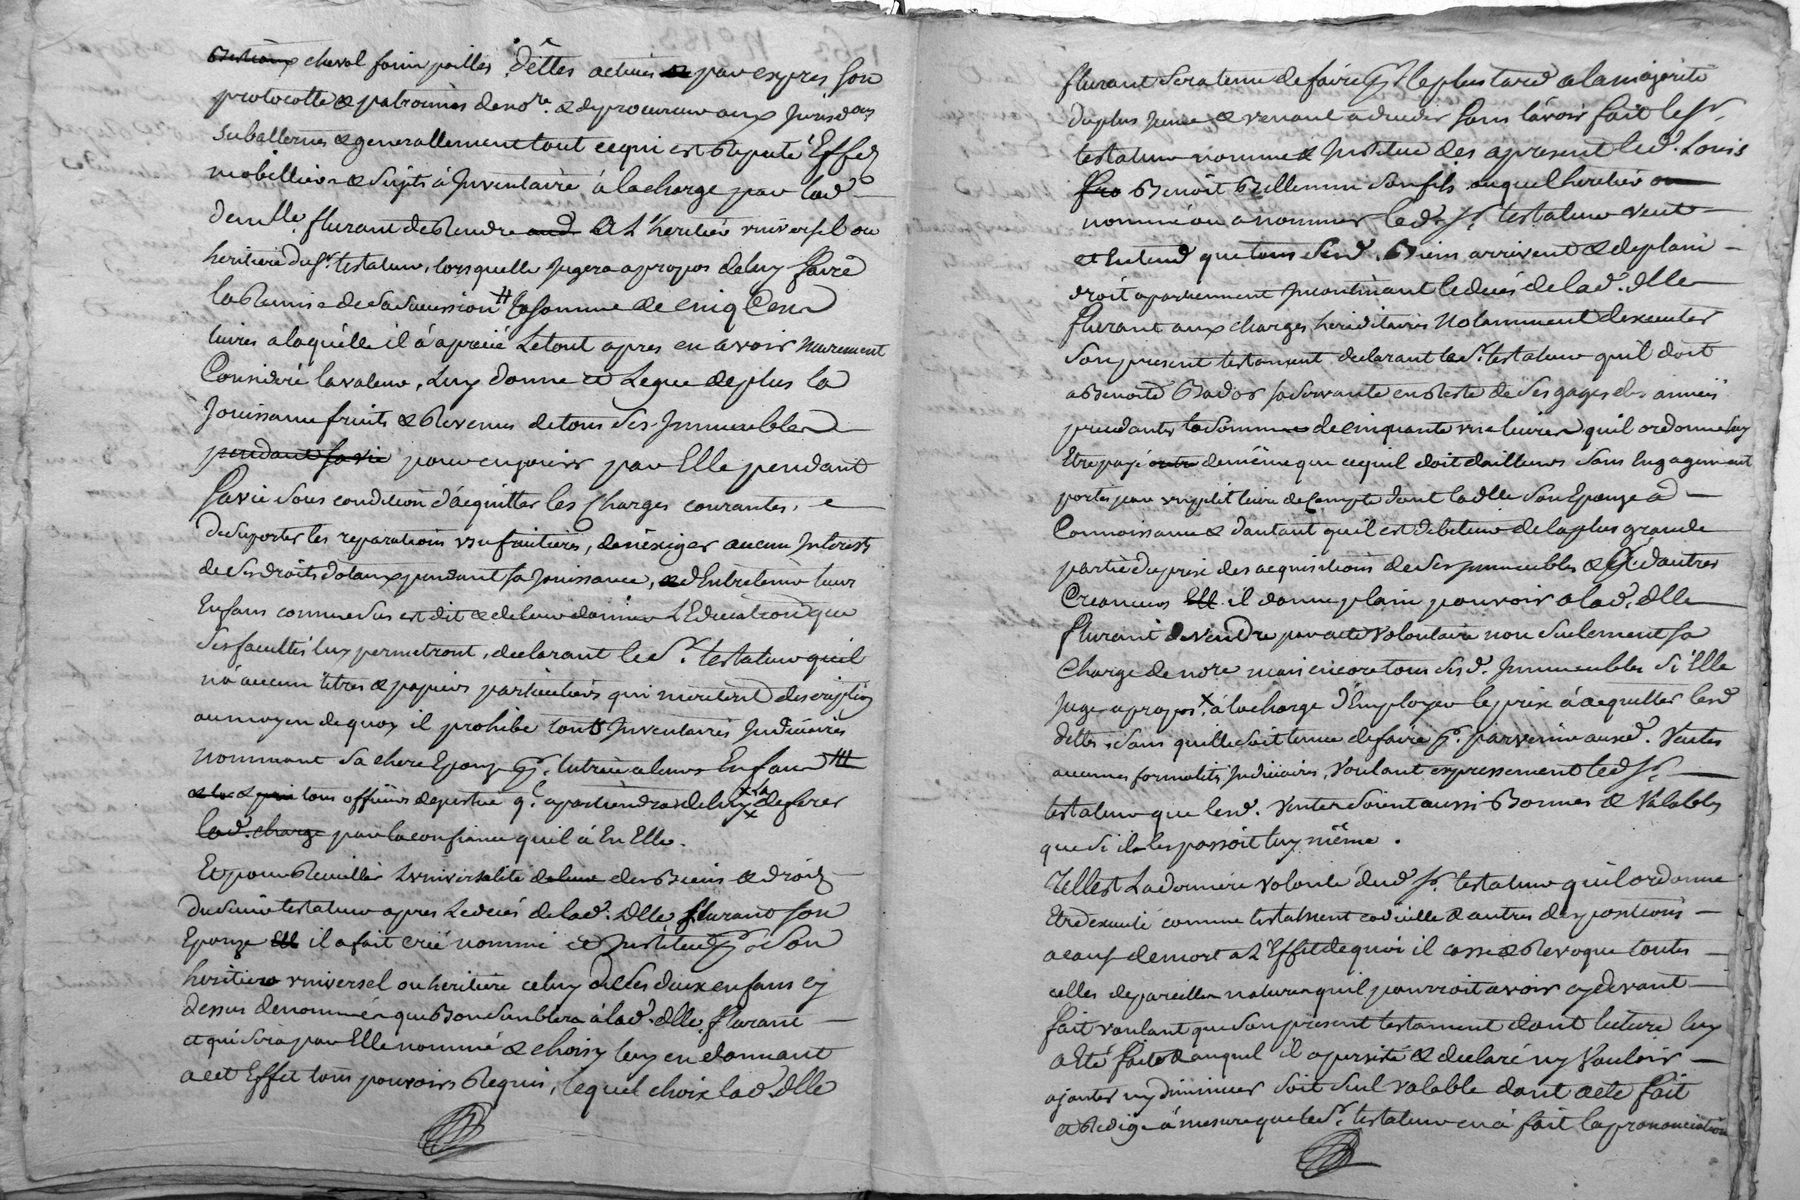 Bestiaux cheval foin pailles, dêttes actives et par exprès son
protocolle & patrocines de nore. & de procureur aux Jurisdons
subalternes & generallement tout ce qui est Reputé Effets
mobilliers & sujets à Inventaire à la charge par lad.
demlle. flurant de Rendre aud. A L'heritier universel ou
heritiere du sr. testateur, lorsquelle Jugera apropos de luy faire
la Remise de sa succession # la somme de cinq Cent
livres a laquelle il à aprecié Le tout apres en avoir meurement
Consideré la valeur, Luy donne et Legue de plus la
Jouissance fruits & Revenus de tous ses Immeubles
pendant sa vie pour en jouir par Elle pendant
sa vie sous condition d'acquitter les Charges courantes,
de suporter les reparations usufruitieres, de n'exiger aucun Interets
de ses droits dotaux pendant sa Jouissance, & d'Entretenir leurs
Enfans comme sus est dit & de leur donner L'Education que
ses facultés luy permetront, declarant le sr. testateur quil
n'à aucun titres & papiers particuliers qui meritent description
au moyen de quoy il prohibe tout Inventaires Judiciaires
nommant sa chere Epouze pr. tutrice a leurs Enfans #
tous officiers de justice qr. apartiendra de luy deferer
lad. charge par la confiance quil à En Elle.
Et pour Recueillir L'universalité de leur des Biens & droits
dud sieur testateur apres Le decés de lad. dlle flurant son
Epouze Ell il a fait creé nommé et Institué pr. son
heritier universel ou heritiere celuy de ses deux enfans cy
dessus denommés que Bon semblera à lad. dlle. flurant
et qui sera par Elle nommé & choisy luy en donnant
a cet Effet tous pouvoirs Requis, lequel choix lad. dlle
flurant sera tenue de faire pr. le plus tard a la majorité
du plus jeune & venant a deceder sans l'avoir fait le sr.
testateur nomme & Institue des apresent led. Louis
fro Benoit Bellemin son fils auquel heritier ou
nommé ou a nommer led. sr. testateur veut
et Entend que tous sesd. Biens arrivent & de plain
droit apartiennent Incontinant le decés de lad. dlle
flurant aux charges hereditaires notamment d'executer
son present testament declarant led sr. testateur quil doit
a Benoite Bador sa servante en Reste de ses gages des années
precedantes la somme de cinquante une livres quil ordonne luy
Etre payé outre de même que ce quil doit dailleurs sans Engagement
portés par un petit livre de Compte dont ladlle son Epouze a
Connoissance & d'autant quil est debiteur de la plus grande
partie du prix des acquisitions de ses immeubles & pr. d'autres
Creances Ell il donne plain pouvoir a lad. dlle
flurant de vendre par acte volontaire non seulement sa
Charge de nore mais encore tous sesd. Immeubles si Elle
Juge apropos x à la charge d'Employer le prix à acquitter lesd
dettes, sans quelle soit tenue de faire pr. parvenir auxd. Ventes
aucunes formalités Judiciaires, voulant expressement led sr.
testateur que lesd. Ventes soient aussi Bonnes & Valables
que si il les passoit luy même.
Telle est La derniere volonté dud. sr. testateur quil ordonne
Etre executé comme testament codicille & autres dispositions
a cause de mort a L'Effet de quoi il casse & Revoque toutes
celles de pareilles natures quil pourroit avoir cy devant
fait voulant que son present testament dont lecture luy
a Eté faite & auquel il a persisté & declaré ny Vouloir
ajouter ny diminuer soit seul valable dont acte fait
& Redigé à mesure que led sr. testateur en à fait la prononciation